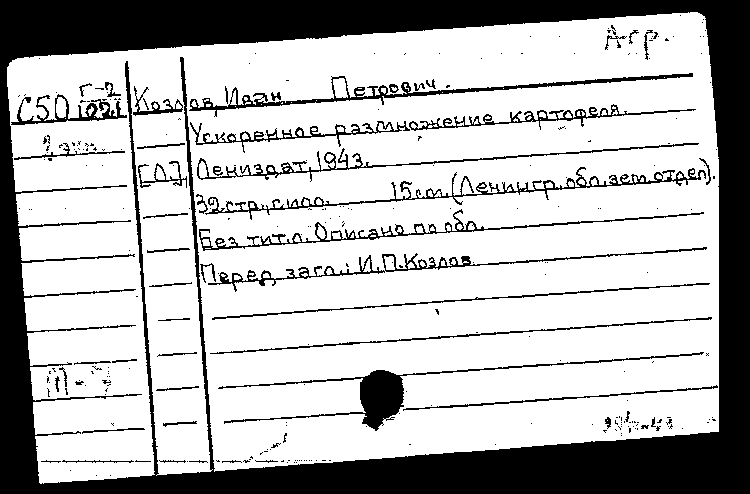 Агр.
С50 Г-2
1021
Козлов, Иван Петрович.
2 экз.
Ускоренное размножение картофеля.
[Л.], Лениздат, 1943.
32 стр., с илл. 15 см. (Ленингр. обл. зем. отдел).
Без тит. л. Описано по обл.
Перед загл.: И.П. Козлов